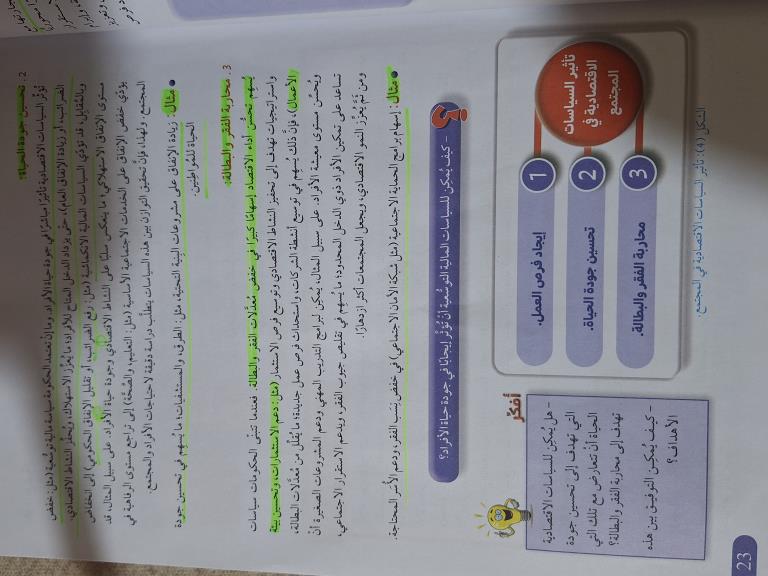 2. تحسين جودة الحياة:
تُؤثِّر السياسات الاقتصادية تأثيرًا مباشرًا في جودة حياة الأفراد. وما إنْ تعتمد الحكومة سياسة مالية توسُّعية (مثل: خفض
الضرائب، أو زيادة الإنفاق العام)، حتّى يزداد الدخل المتاح للأفراد؛ ما يُعزِّز الاستهلاك، ويُحفِّز النشاط الاقتصادي.
وبالمُقابِل، قد تُؤدّي السياسات المالية الانكماشية (مثل: رفع الضرائب، أو تقليل الإنفاق الحكومي) إلى انخفاض
مستوى الإنفاق الاستهلاكي؛ ما ينعكس سلبًا على النشاط الاقتصادي وجودة حياة الأفراد. على سبيل المثال، قد
يؤدّي خفض الإنفاق على الخدمات الاجتماعية الأساسية (مثل: التعليم، والصحَّة) إلى تراجع مستوى الرفاهية في
المجتمع. ولهذا، فإنَّ تحقيق التوازن بين هذه السياسات يتطلَّب دراسة دقيقة لاحتياجات الأفراد والمجتمع.
• مثال: زيادة الإنفاق على مشروعات البِنية التحتية، مثل: الطرق، والمستشفيات؛ ما يُسهِم في تحسين جودة
الحياة للمُواطِنين.
3. محاربة الفقر والبطالة:
يُسهِم تحسُّن أداء الاقتصاد إسهامًا كبيرًا في خفض مُعدَّلات الفقر والبطالة. فعندما تتبنّى الحكومات سياسات
واستراتيجيات تهدف إلى تحفيز النشاط الاقتصادي وتوسيع فرص الاستثمار (مثل: دعم الاستثمارات، وتحسين بيئة
الأعمال)، فإنَّ ذلك يُسهِم في توسيع أنشطة الشركات، واستحداث فرص عمل جديدة؛ ما يُقلِّل من مُعدَّلات البطالة،
ويُحسِّن مستوى معيشة الأفراد. على سبيل المثال، يُمكِن لبرامج التدريب المهني ودعم المشروعات الصغيرة أنْ
تساعد على تمكين الأفراد ذوي الدخل المحدود؛ ما يُسهِم في تقليص جيوب الفقر، ويدعم الاستقرار الاجتماعي،
ومن ثَمَّ يُعزِّز النمو الاقتصادي، ويجعل المجتمعات أكثر ازدهارًا.
• مثال: إسهام برامج الحماية الاجتماعية (مثل شبكة الأمان الاجتماعي) في خفض نِسَب الفقر، ودعم الأُسَر المحتاجة.
كيف يُمكِن للسياسات المالية التوسُّعية أنْ تُؤثِّر إيجابًا في جودة حياة الأفراد؟
تأثير السياسات
الاقتصادية في
المجتمع
1 إيجاد فرص العمل.
2 تحسين جودة الحياة.
3 محاربة الفقر والبطالة.
الشكل (4): تأثير السياسات الاقتصادية في المجتمع.
أُفكِّر
- هل يُمكِن للسياسات الاقتصادية
التي تهدف إلى تحسين جودة
الحياة أنْ تتعارض مع تلك التي
تهدف إلى محاربة الفقر والبطالة؟
- كيف يُمكِن التوفيق بين هذه
الأهداف؟
23